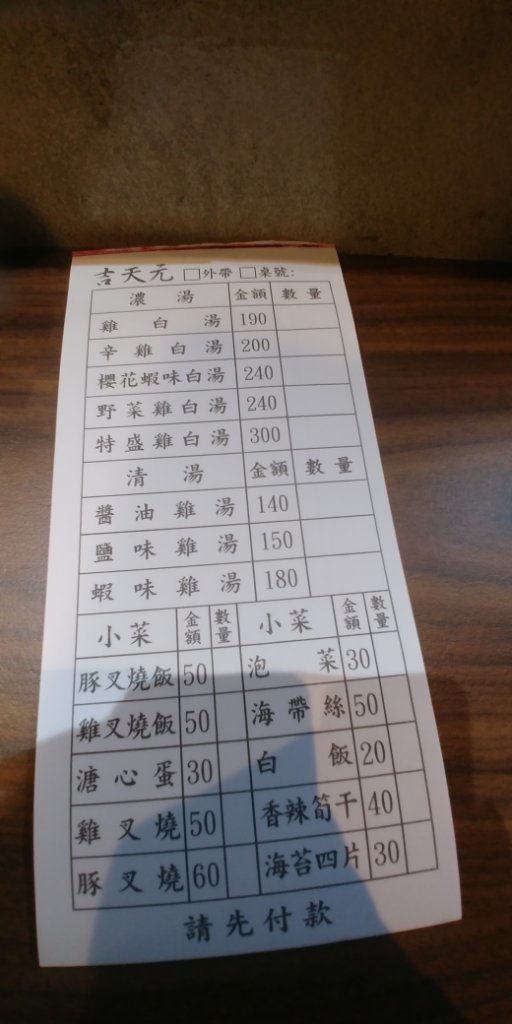 吉天元 □外帶 □桌號:
濃湯 金額 數量
雞白湯 190
辛雞白湯 200
櫻花蝦味白湯 240
野菜雞白湯 240
特盛雞白湯 300
清湯 金額 數量
醬油雞湯 140
鹽味雞湯 150
蝦味雞湯 180
小菜 金額 數量 小菜 金額 數量
豚叉燒飯 50 泡菜 30
雞叉燒飯 50 海帶絲 50
溏心蛋 30 白飯 20
雞叉燒 50 香辣筍干 40
豚叉燒 60 海苔四片 30
請先付款